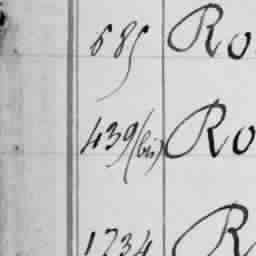 685 Ro
439(bis) Ro
1234 R